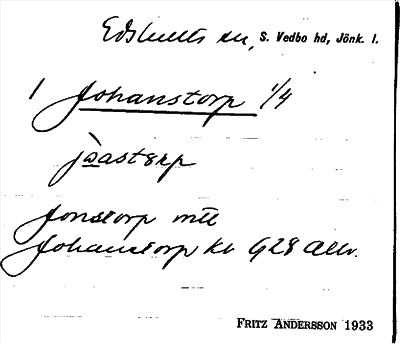 Edshults sn, S. Vedbo hd, Jönk. l.
1 Johanstorp 1/4
jòastərp
Jonstorp mtl
Johanstorp kb G28 Allv.
FRITZ ANDERSSON 1933